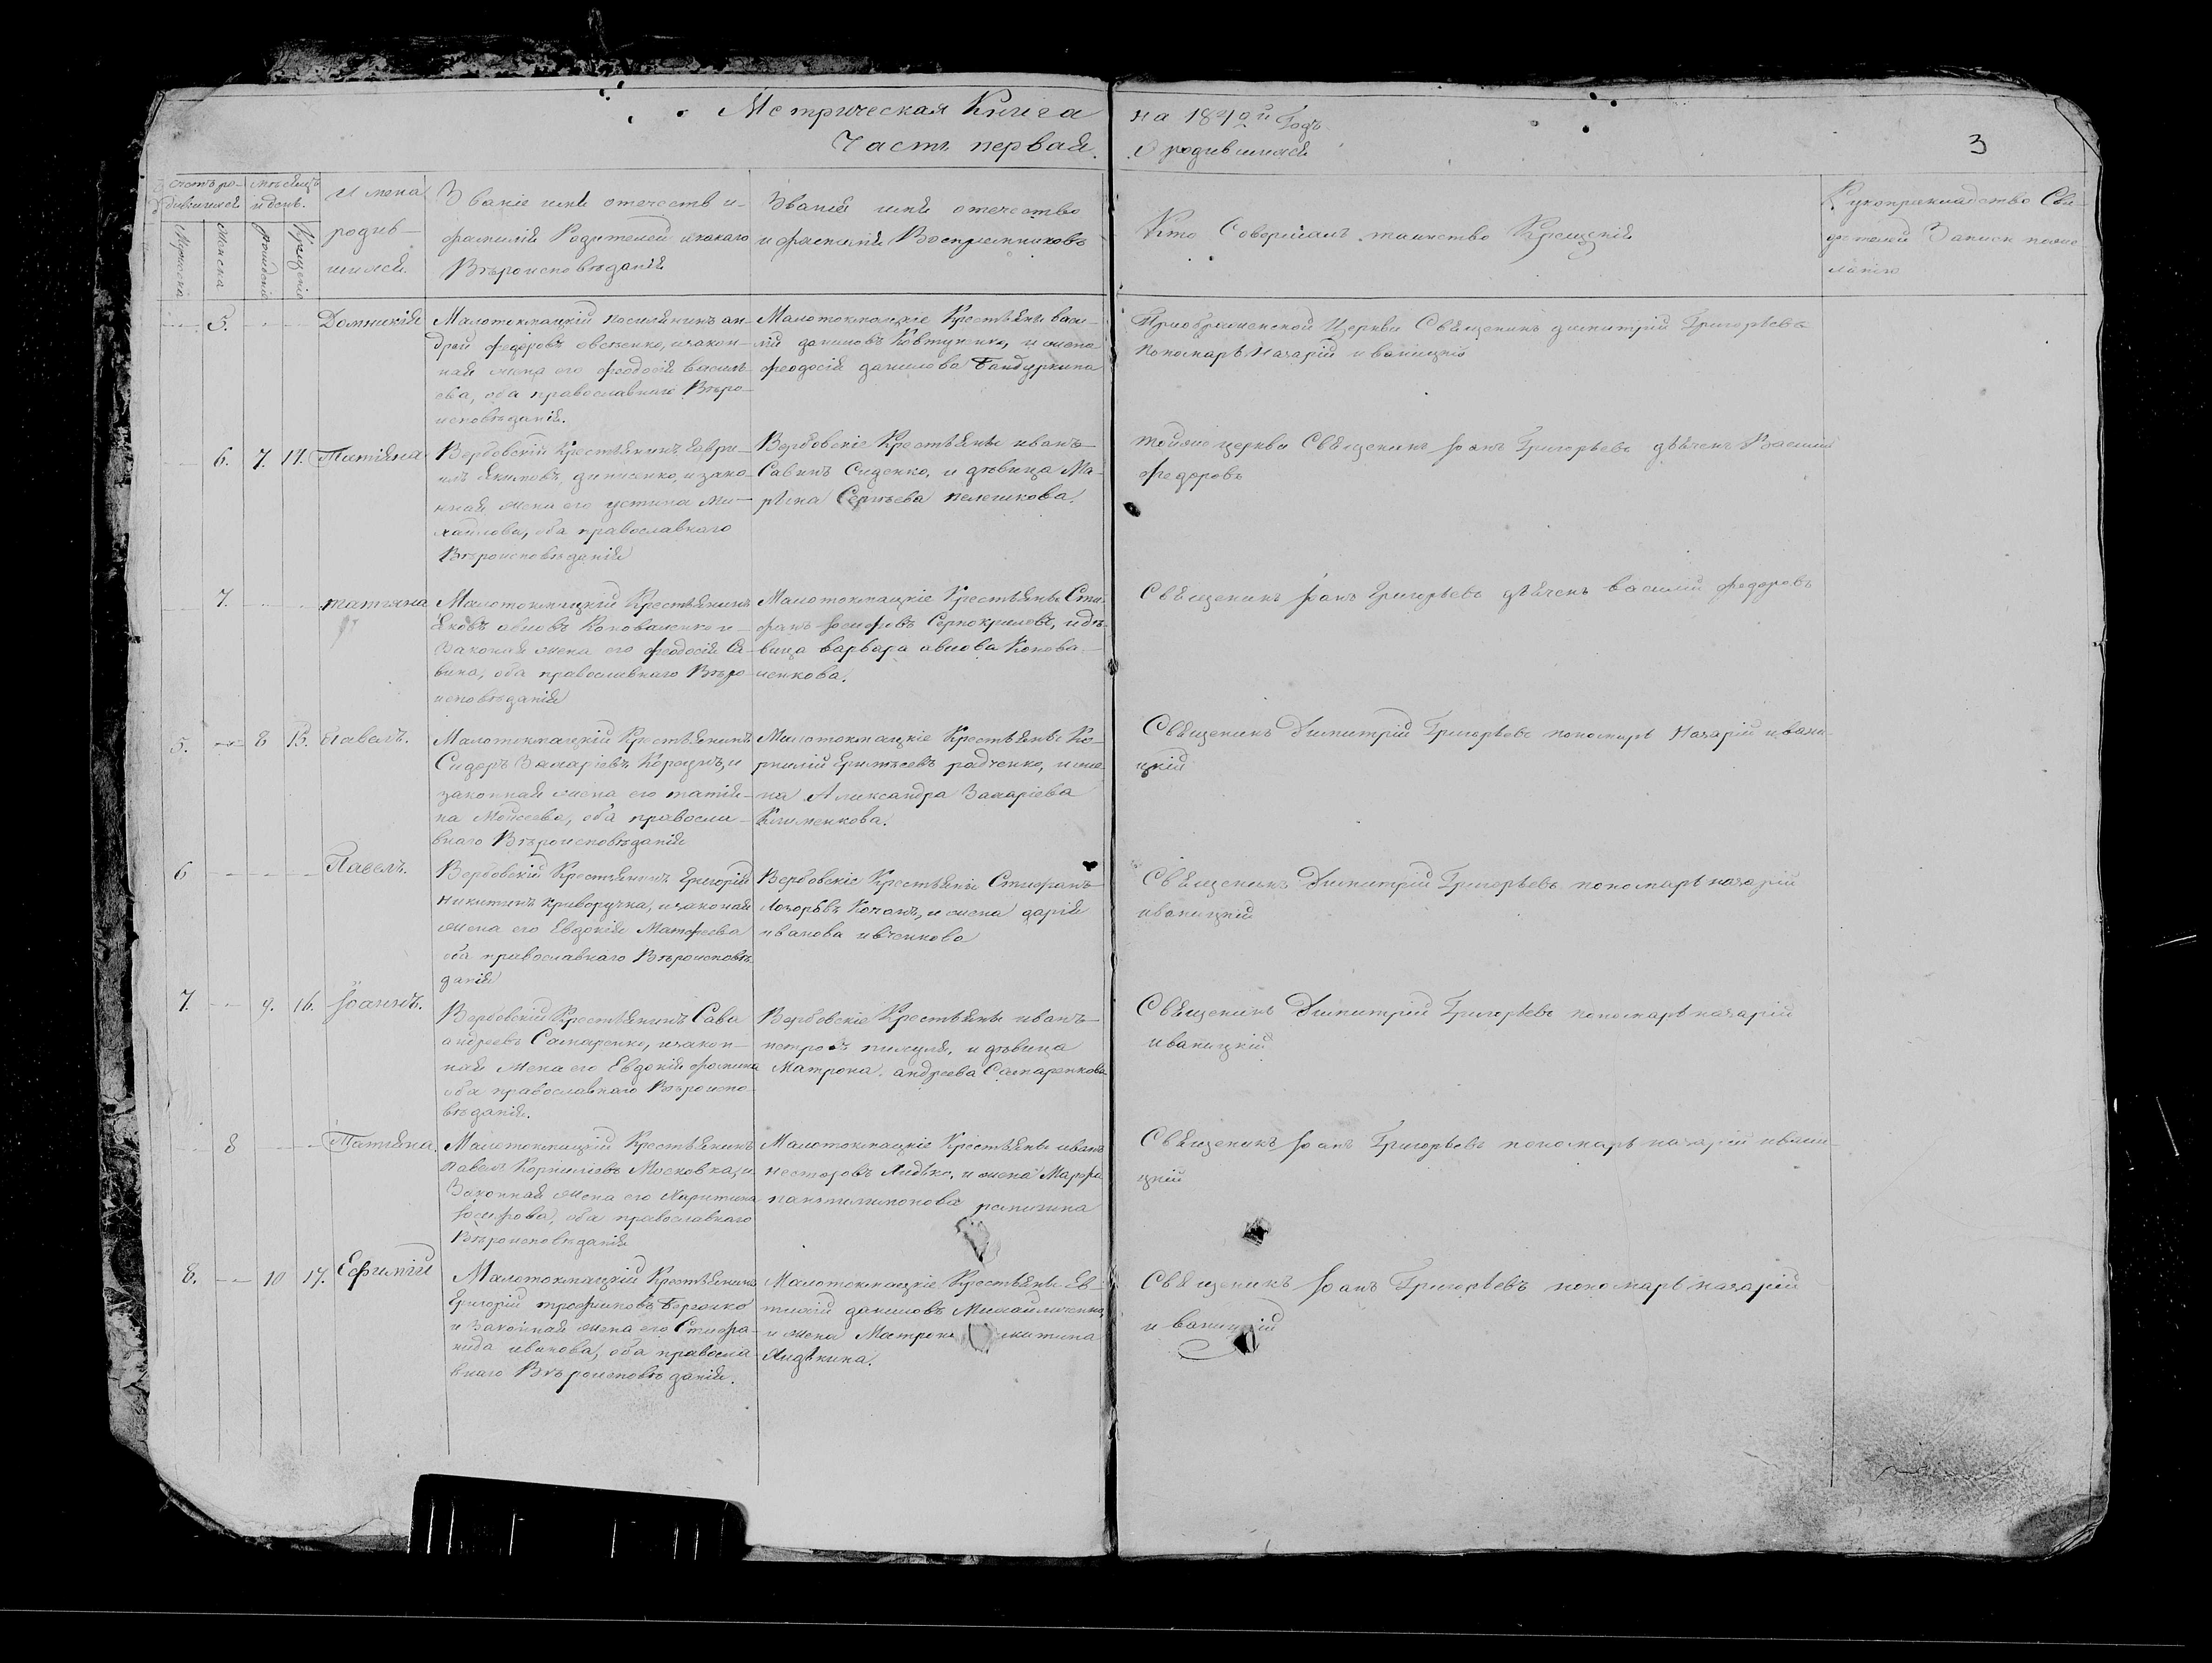 Метрическая Книга на 1842й Годъ
Часть первая. О родившихся
3
счетъ ро-
дившихся
мѣсяцъ
и день.
Мужеска
Женска
рождения
Крещения
имена
родив-
шихся.
Званіе имя отечеств и
фамилія Родителей и какаго
Вѣроисповѣданія
Званія имя отечество
и фамилія Воспріемниковъ
Кто Совершалъ таинство Крещенія
Рукоприкладство Сви-
детелей Записи поже-
ланію
5. Домникія
Малотокмацкій поселянинъ ан-
дрей федоровъ овсѣенко, и закон-
ная жена его феодосія василь-
ева, оба православнаго Вѣро-
исповѣданія.
Малотокмацкіе Крестьяне васи-
лій даниловъ Ковтуненко, и жена
феодосія данилова Бандуркина
Приображенской Церкви Священикъ димитрій Григорьевъ
пономарь Назарій иваницкій
6. 7. 17. Татіяна
Вербовскій Крестьянинъ гаври-
илъ Якимовъ денисенко, и зако-
нная жена его устина Ми-
хайлова, оба православнаго
Вѣроисповѣданія
Вербовскіе Крестьяне иванъ
Савинъ Сиденко, и дѣвица Ма-
рьяна Сергѣева пелешкова.
тойже церкви Священикъ Іоанъ Григорьевъ дьячекъ Василій
федоровъ
7. татяна
Малотокмацкій Крестьянинъ
Яковъ авиовъ Коноваленко и
Законая жена его феодосія Са-
вина, оба православнаго Вѣро-
исповѣданія
Малотокмацкіе Крестьяне Сти-
фанъ Іосифовъ Серпокриловъ, и дѣ-
вица варвара авиова Конова-
ленкова.
Священикъ Іоанъ Григорьевъ дьячекъ василій федоровъ
5. 8 13. Павелъ.
Малотокмацкій Крестьянинъ
Сидоръ Захаріевъ Корецкъ, и
законная жена его татія-
на Моисеева, оба правосла-
внаго Вѣроисповѣданія
Малотокмацкіе Крестьяне Ко-
рнилій Еримѣевъ радченко, и же-
на Александра Захаріева
Клименкова.
Священикъ Димитрій Григорьевъ пономарь Назарій ивани-
цкій
6 Павелъ.
Вербовскій Крестьянинъ Григорій
Никитинъ криворучка, и законая
жена его Евдокія Матфеева
оба православнаго Вѣроисповѣ-
данія
Вербовскіе Крестьяне Стифанъ
Лазорьвъ Кочанъ, и жена дарія
иванова ивченкова
Священикъ Димитрій Григорьевъ пономарь назарій
иваницкій
7. 9. 16. Іоаннъ.
Вербовскій Крестьянинъ Сава
андреевъ Самаренко, и закон-
ная жена его Евдокія фомина
оба православнаго Вѣроиспо-
вѣданія.
Вербовскіе Крестьяне иванъ
петровъ пикуля, и дѣвица
Матрона андреева Самаренкова
Священикъ Димитрій Григорьевъ пономарь назарій
иваницкій
8 Татіяна
Малотокмацкій Крестьянинъ
павелъ Корниліевъ Московка, и
Законная жена его Харитина
Іосифова, оба православнаго
Вѣроисповѣданія
Малотокмацкіе Крестьяне иванъ
несторовъ Лидько, и жена Марфа
пантилимонова репичина
Священикъ Іоанъ Григорьевъ пономарь назарій ивани-
цкій
8. 10 17. Ефимій
Малотокмацкій Крестьянинъ
Григорій трофимовъ Берченко
и Законная жена его Стифа-
нида иванова, оба правосла-
внаго Вѣроисповѣданія.
Малотокмацкіе Крестьяне Ев-
тихій даниловъ Михайличенко,
и жена Матрона митина
Лидькина.
Священикъ Іоанъ Григорьевъ пономарь назарій
иваницкій